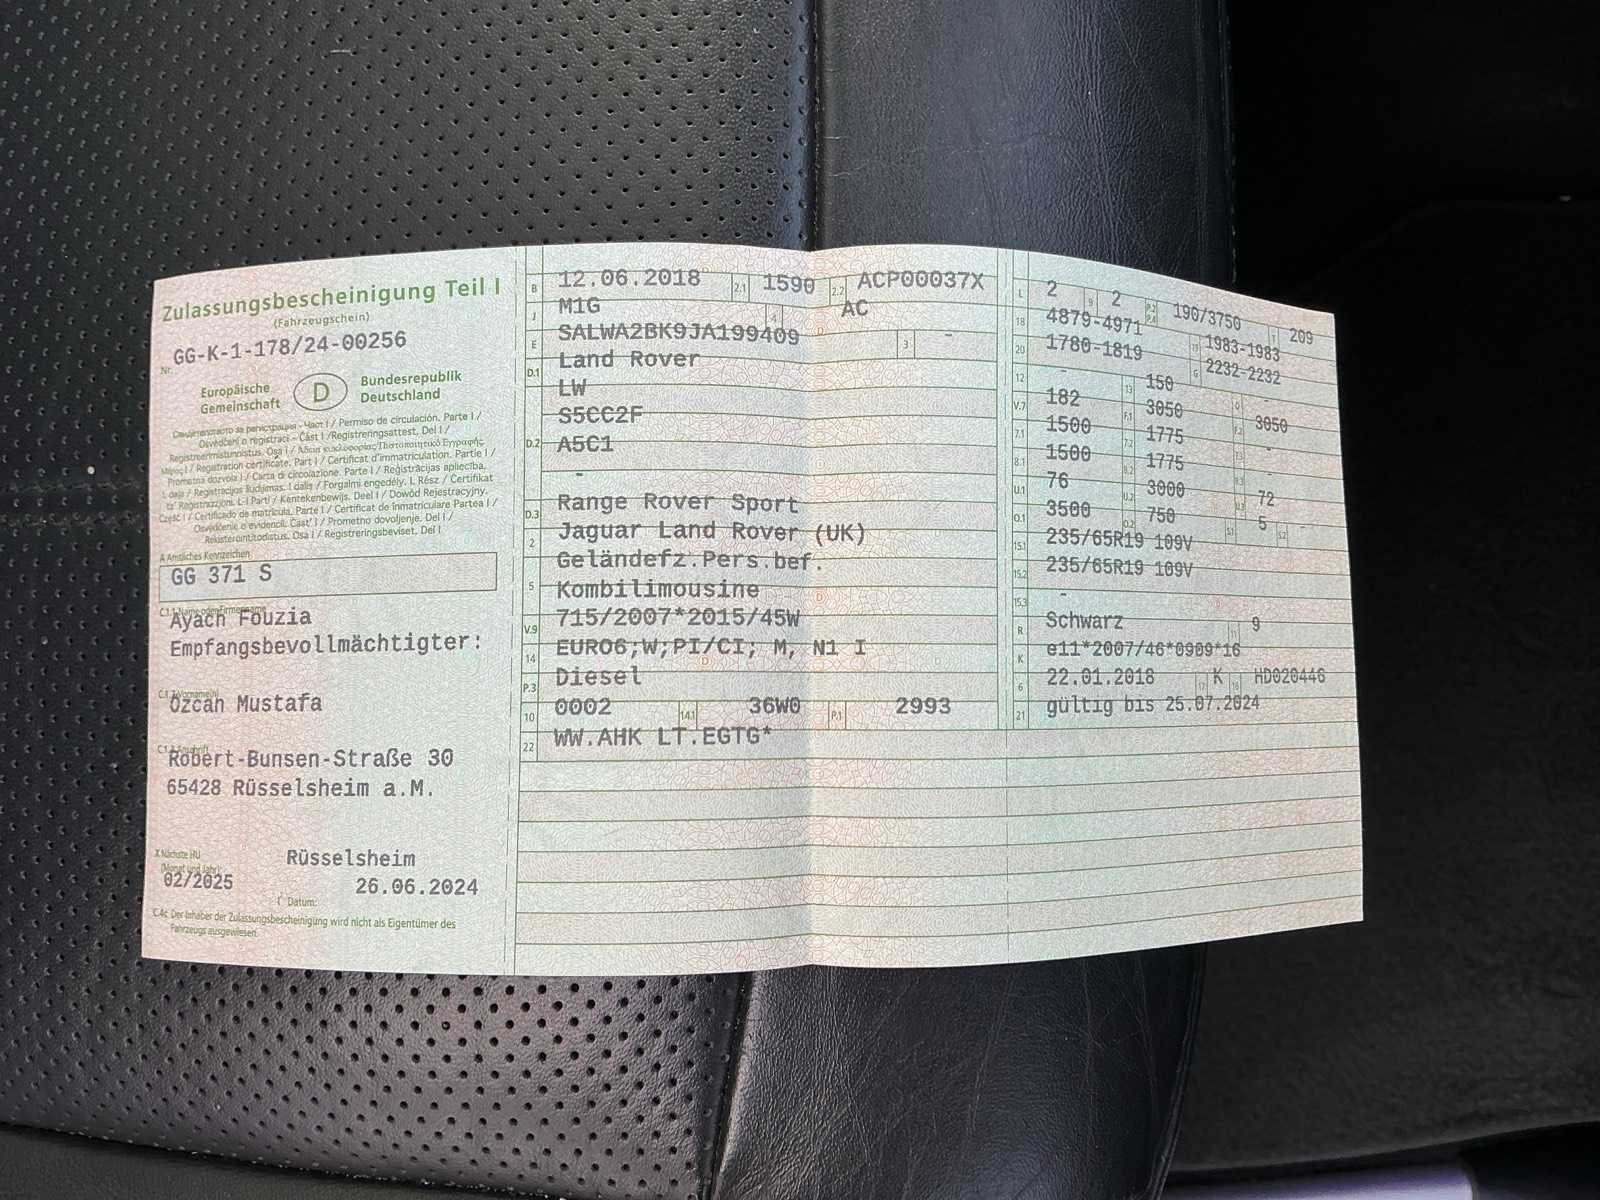 Zulassungsbescheinigung Teil I
(Fahrzeugschein)
Nr. GG-K-1-178/24-00256
Europäische Gemeinschaft
D
Bundesrepublik Deutschland
Osvědčení o registraci - Část I / Registreringsattest. Del I /
Registreerimistunnistus. Osa I /
/ Registration certificate. Part I / Certificat d'immatriculation. Partie I /
Prometna dozvola I / Carta di circolazione. Parte I / Reģistrācijas apliecība.
I. daļa / Registracijos liudijimas. I dalis / Forgalmi engedély. I. Rész / Ċertifikat
ta' Reġistrazzjoni. L-I Parti / Kentekenbewijs. Deel I / Dowód Rejestracyjny.
Część I / Certificado de matrícula. Parte I / Certificat de înmatriculare Partea I /
Osvedčenie o evidencii. Časť I / Prometno dovoljenje. Del I /
Rekisteröintitodistus. Osa I / Registreringsbeviset. Del I
A Amtliches Kennzeichen
GG 371 S
C.1.1 Name oder Firmenname
Ayach Fouzia
Empfangsbevollmächtigter:
C.1.2 Vorname(n)
Özcan Mustafa
C.1.3 Anschrift
Robert-Bunsen-Straße 30
65428 Rüsselsheim a.M.
X Nächste HU
(Monat und Jahr)
02/2025
Rüsselsheim
26.06.2024
I Datum:
C.4c Der Inhaber der Zulassungsbescheinigung wird nicht als Eigentümer des
Fahrzeugs ausgewiesen.
B 12.06.2018 2.1 1590 2.2 ACP00037X
J M1G 4 AC
E SALWA2BK9JA199409 3 -
D.1 Land Rover
LW
D.2 S5CC2F
A5C1
-
D.3 Range Rover Sport
2 Jaguar Land Rover (UK)
5 Geländefz.Pers.bef.
Kombilimousine
V.9 715/2007*2015/45W
14 EURO6;W;PI/CI; M, N1 I
P.3 Diesel
10 0002 14.1 36W0 P.1 2993
22 WW.AHK LT.EGTG*
L 2 9 2 P.2 P.4 190/3750 T 209
18 4879-4971 19 1983-1983
20 1780-1819 G 2232-2232
12 - 13 150 Q -
V.7 182 F.1 3050 F.2 3050
7.1 1500 7.2 1775 7.3 -
8.1 1500 8.2 1775 8.3 -
U.1 76 U.2 3000 U.3 72
O.1 3500 O.2 750 S.1 5 S.2 -
15.1 235/65R19 109V
15.2 235/65R19 109V
15.3 -
R Schwarz 11 9
K e11*2007/46*0909*16
6 22.01.2018 17 K 16 HD020446
21 gültig bis 25.07.2024